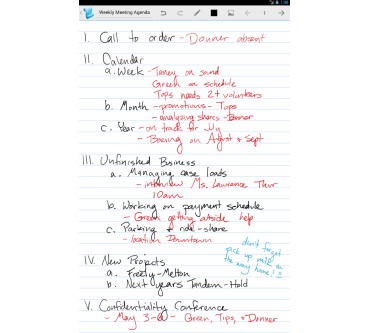 Weekly Meeting Agenda
I. Call to order - Donner absent
II. Calendar
a. Week - Taney on sand
Green on schedule
Tops needs 2+ volunteers
b. Month - promotions - Tops
- analyzing shares - Donner
c. Year - on track for July
- Boeing on August & Sept
III. Unfinished Business
a. Managing case loads
- interview Ms. Lawrance Thur
10am
b. Working on payment schedule
- Green getting outside help
c. Parking & ride-share
- location Downtown
don't forget
pick up milk on
the way home!
IV. New Projects
a. Freedy - Melton
b. Next years Tandem - Hold
V. Confidentiality Conference
- May 3- - Green, Tips, & Donner